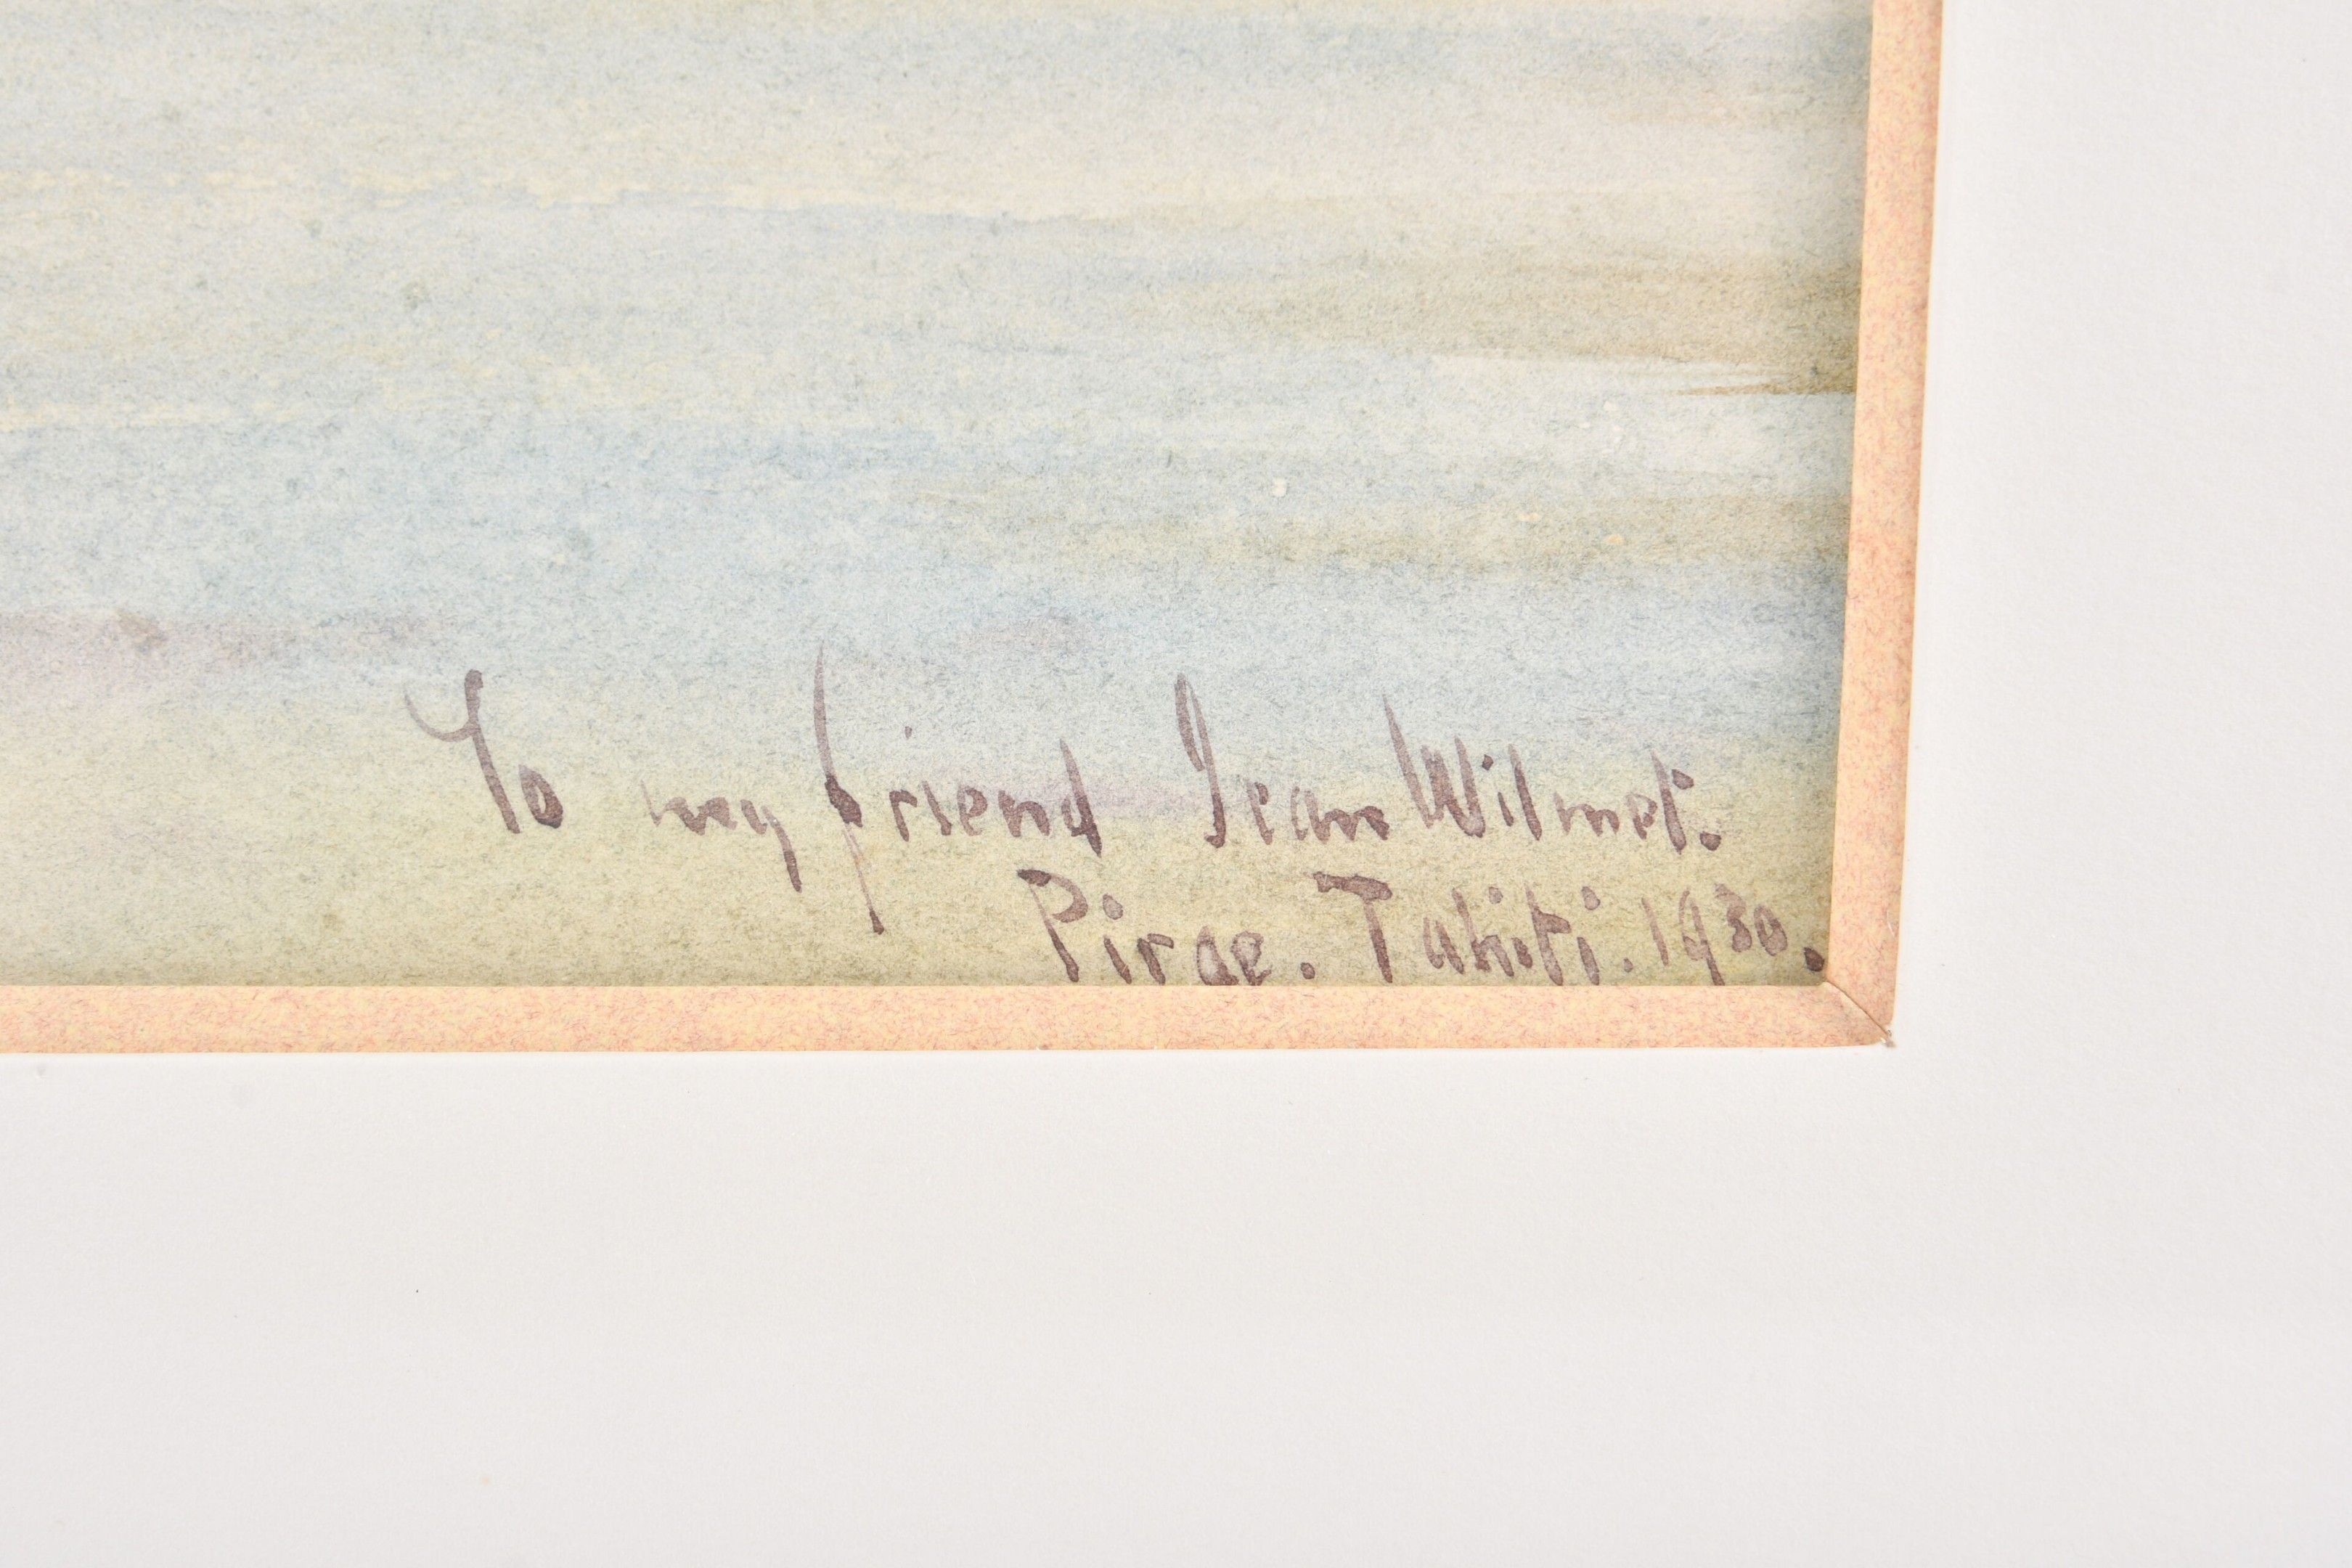 To my friend Jean Wilmet.
Pirae. Tahiti. 1930.